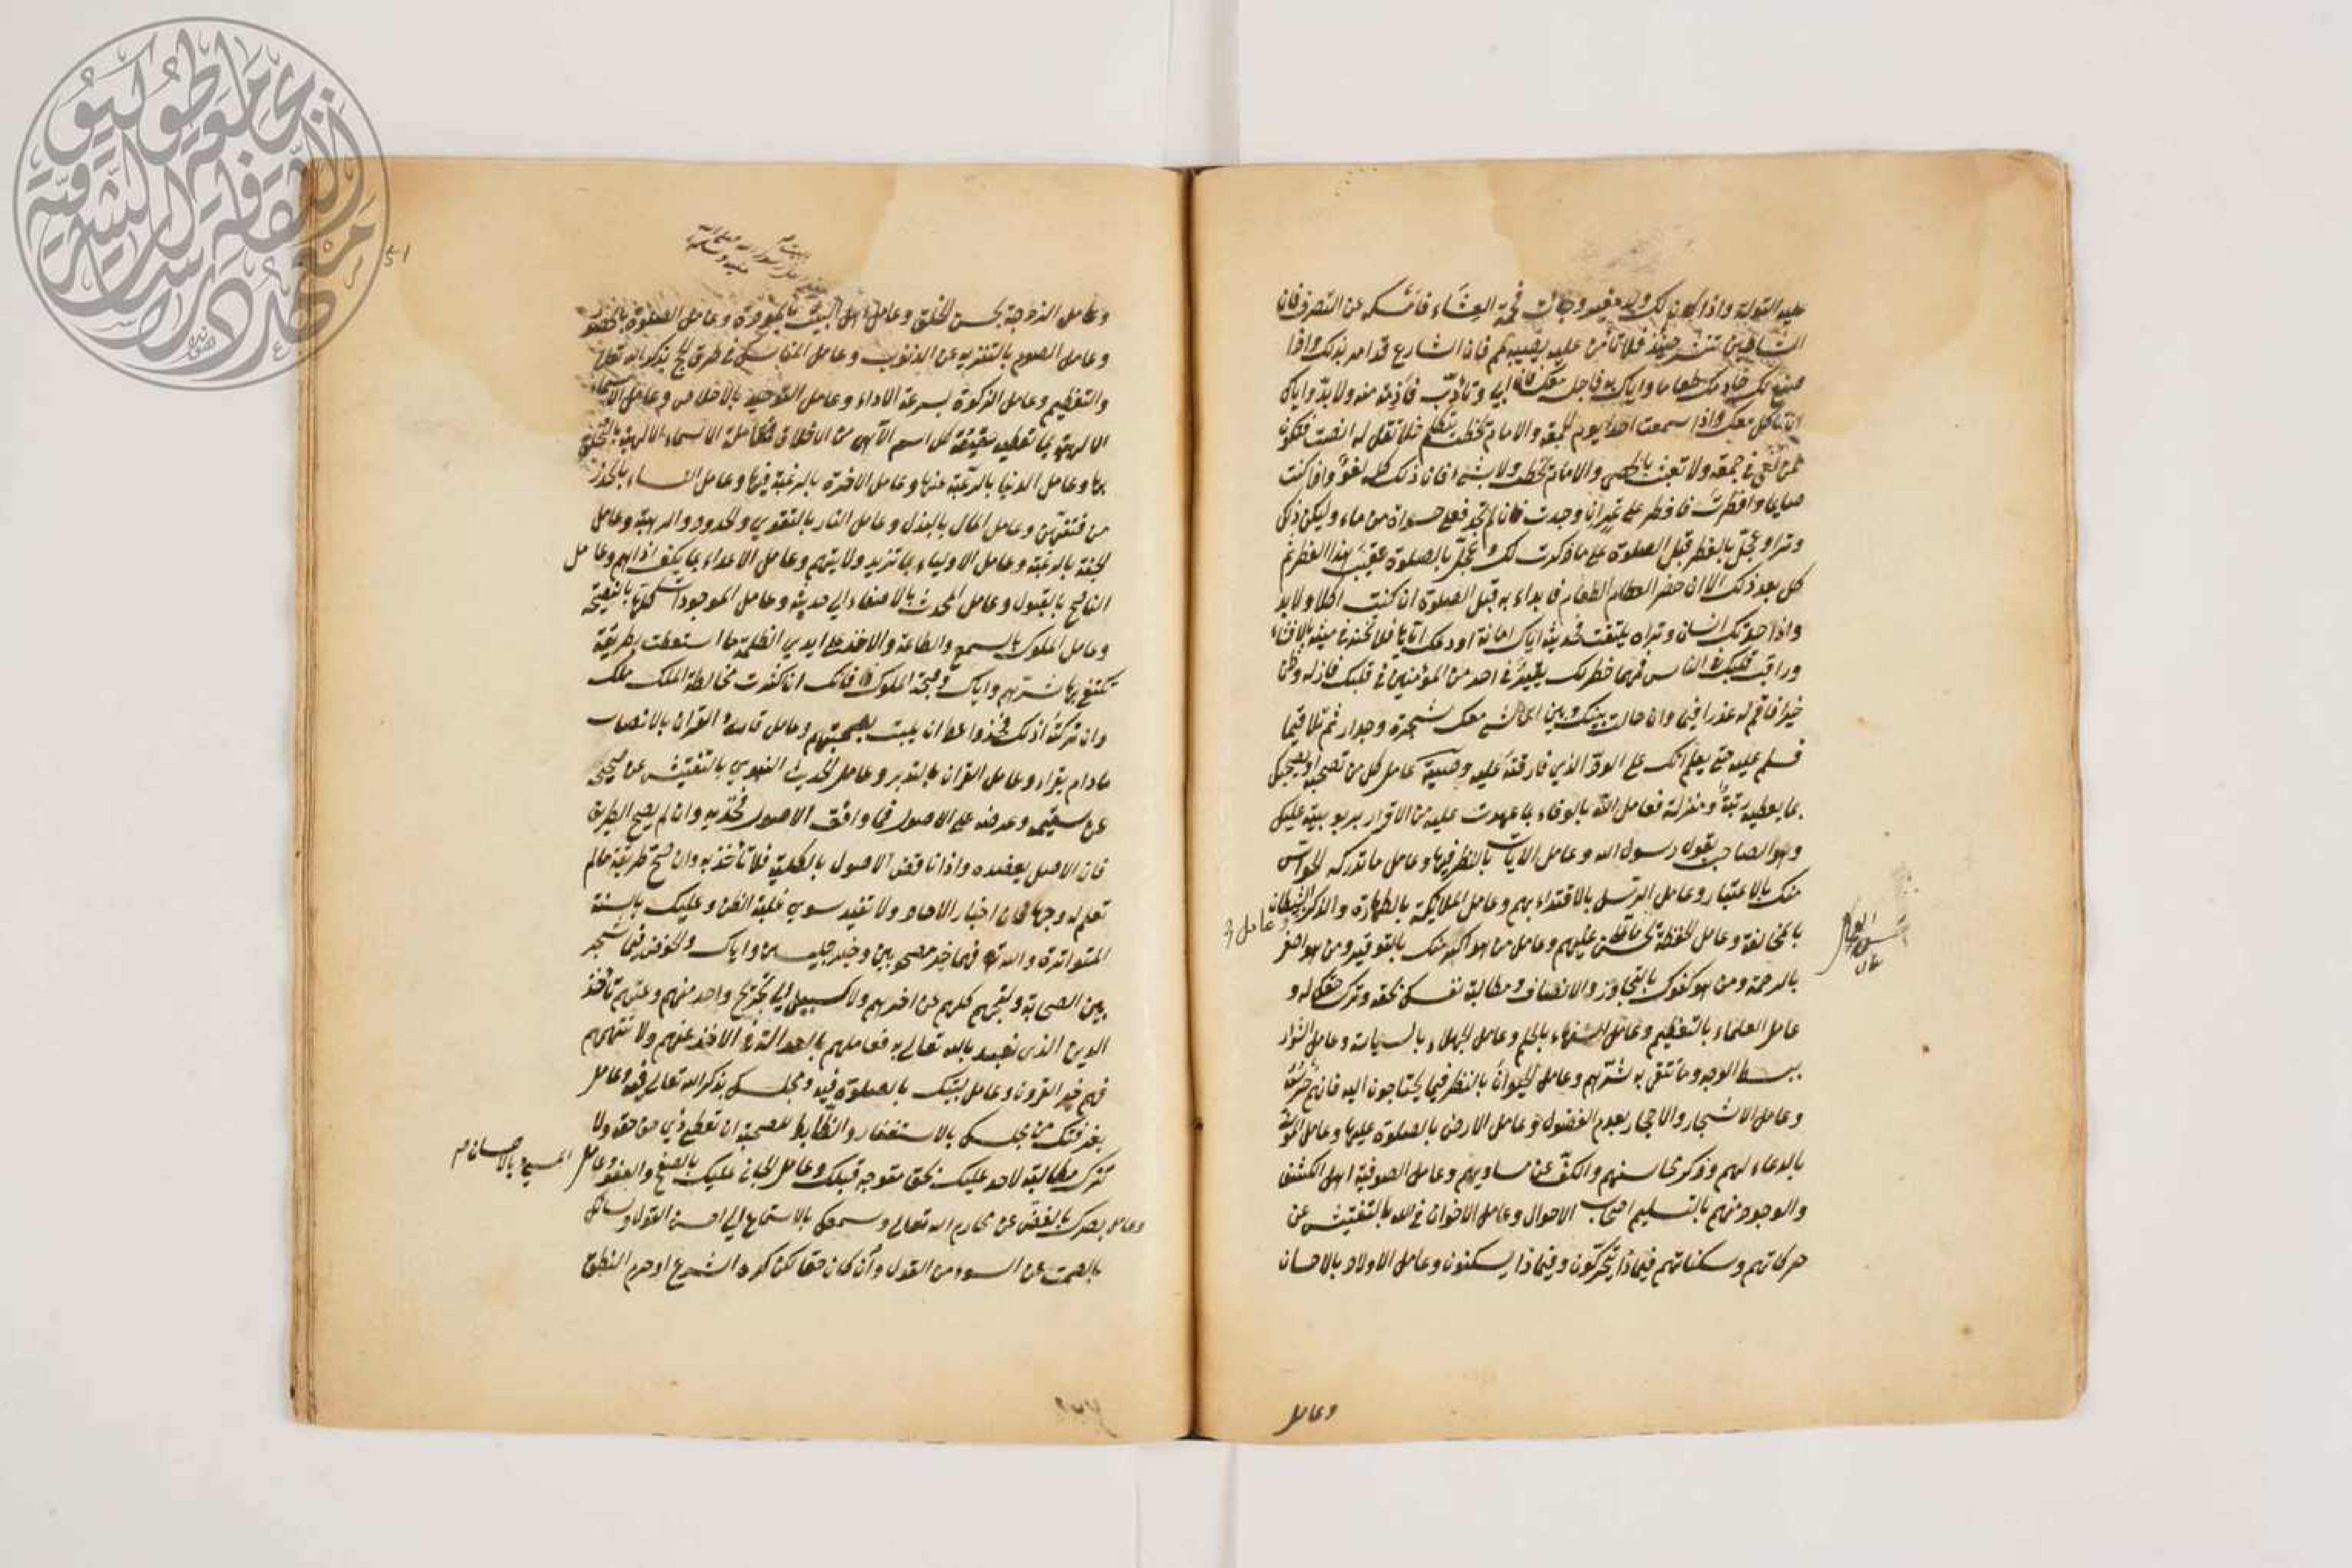 عليه القولة واذا كان لك ولد صغير وجاءت فحمة العشاء فامسكه عن التصرف فان
الشياطين تنتشر حينئذ فلا تأمن عليه يصيبه لمم فان الشارع قد امر بذلك واذا
صنع لك خادمك طعاما واياك به فاجلسه معك فان ابى وتأدب فأذقه منه ولا بد واياك
ان تأكل معك واذا سمعت احدا يوم الجمعة والامام يخطب يتكلم فلا تقل له انصت فتكون
ممن لغى في جمعته ولا تعبث بالحصى والامام يخطب ولا بشيء فان ذلك كله لغو واذا كنت
صايما وافطرت فافطر على تمر ان وجدت فان لم تجد فعلى حسوة من ماء وليكن ذلك
وترا وعجل بالفطر قبل الصلوة على ما ذكرت لك وعجل بالصلوة عقيب هذا الفطر ثم
كل بعد ذلك الا ان حضر الطعام فابداء به قبل الصلوة ان كنت اكلا ولا بد
واذا حدثك انسان وتراه يلتفت فحديثه اياك امانة اودعك اياها فلا تخنه في حديثه بالافشاء
وراقب قلبك في الناس فمهما خطر لك بقبيح في احد من المؤمنين في قلبك فازله وظن
خيرا فاقم له عذرا فيه وان حالت بينك وبين الماشي معك شجرة وجدار ثم تلاقيتما
فسلم عليه حتى يعلم انك على الود الذي فارقته عليه وصية عامل كل من تصحبه او يصحبك
بما يعطيه رتبة ومنزلة فعامل الله بالوفاء بما عهدت عليه من الاقرار بربوبيته عليك
وهو الصاحب بقول رسول الله وعامل الايات بالنظر فيها وعامل ما تدركه الحواس
منك بالاعتبار وعامل الرسل بالاقتداء بهم وعامل الملايكة بالطهارة والذكر وعامل الشيطان
بالمخالفة وعامل الحفظة بحسن ما تملي عليهم وعامل من هو اكبر منك بالتوقير ومن هو اصغر
بالرحمة ومن هو كفوك بالتجاوز والانصاف ومطالبة نفسك بحقه وترك حقك له و
عامل العلماء بالتعظيم وعامل السفهاء بالحلم وعامل الجهلاء بالسياسة وعامل الاشرار
ببسط الوجه وما تتقي به شرهم وعامل الحيوان بالنظر فيما يحتاجون اليه فانهم خرس
وعامل الاشجار والاحجار بعدم الفضول وعامل الارض بالصلوة عليها وعامل الموتى
بالدعاء لهم وذكر محاسنهم والكف عن مساويهم وعامل الصوفية اهل الكشف
والوجود منهم بالتسليم اصحاب الاحوال وعامل الاخوان في الله بالتفتيش عن
حركاتهم وسكناتهم فيما ذا يتحركون وفيما ذا يسكنون وعامل الاولاد بالاحسان
وعامل
51
وعامل الزوجة بحسن الخلق وعامل اهل البيت بالمودة وعامل الصلوة بالحضور
وعامل الصوم بالتنزيه عن الذنوب وعامل المناسك في طرق الحج بذكر الله تعالى
والتعظيم وعامل الزكوة بسرعة الاداء وعامل التوحيد بالاخلاص وعامل الاسماء
الالهية بما تعطيه حقيقة كل اسم الآهي من الاخلاق فمعاملة الاسماء الالهية بالتخلق
بها وعامل الدنيا بالرغبة عنها وعامل الاخرة بالرغبة فيها وعامل النساء بالحذر
من فتنتهن وعامل المال بالبذل وعامل النار بالتقوى والحدود والرهبة وعامل
الجنة بالرغبة وعامل الاولياء بما تزيد ولايتهم وعامل الاعداء بما يكف اذاهم وعامل
الناصح بالقبول وعامل المحدث بالاصغاء الى حديثه وعامل الموجودات كلها بالنصيحة
وعامل الملوك بالسمع والطاعة والاخذ على ايدي الظلمة ما استطعت بطريقة
تكتفي بها شرهم واياك وصحبة الملوك فانك ان اكثرت مخالطة الملك ملك
وان تركته اذلك فخذ واعط ان بليت بصحبتهم وعامل قارئ القران بالانصات
ما دام يقراء وعامل القران بالتدبر وعامل الحديث النبوي بالتفتيش عن صحيحه
عن سقيمه وعرضه على الاصول فما وافق الاصول فخذ به وان لم يصح الطريق
فان الاصل يعضده واذا ناقض الاصول بالكلية فلا تأخذ به وان صح طريقه ما لم
تعلم له وجها فان اخبار الاحاد ولا تفيد سوى غلبة الظن وعليك بالسنة
المتواترة والله فهما خير مصحوبين وخير جليسين واياك والخوض فيما شجر
بين الصحابة ولتحبهم كلهم عن اخرهم ولا سبيل الى تجريح واحد منهم وعنهم تاخذ
الدين الذي نعبد بالله تعالى به فعاملهم بالعدالة في الاخذ عنهم ولا تتهمهم
فهم خير القرون وعامل بيتك بالصلوة فيه ومجلسك بذكر الله تعالى فيه وعامل
بعد فرقتك من مجلسك بالاستغفار والضابط للصحبة ان تعطي ذي حق حقه ولا
تترك مطالبة لاحد عليك بحق متوجه قبلك وعامل الجاني عليك بالصفح والعفو وعامل المسيء بالاحسان صح
وعامل بصرك بالغض عن محارم الله تعالى وسمعك بالاستماع الى احسن القول ولسانك
بالصمت عن السوء من القول وأن كان حقا لكن كره الشرع او حرم النطق